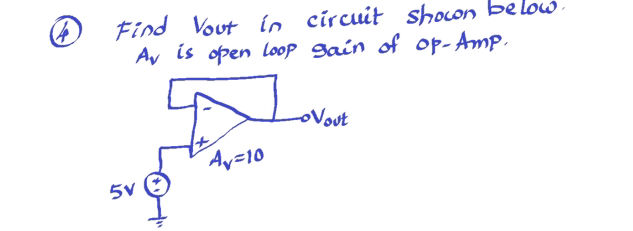 4 Find Vout in circuit shown below.
Av is open loop gain of op-Amp.
-
Vout
+
Av=10
5V
+
-